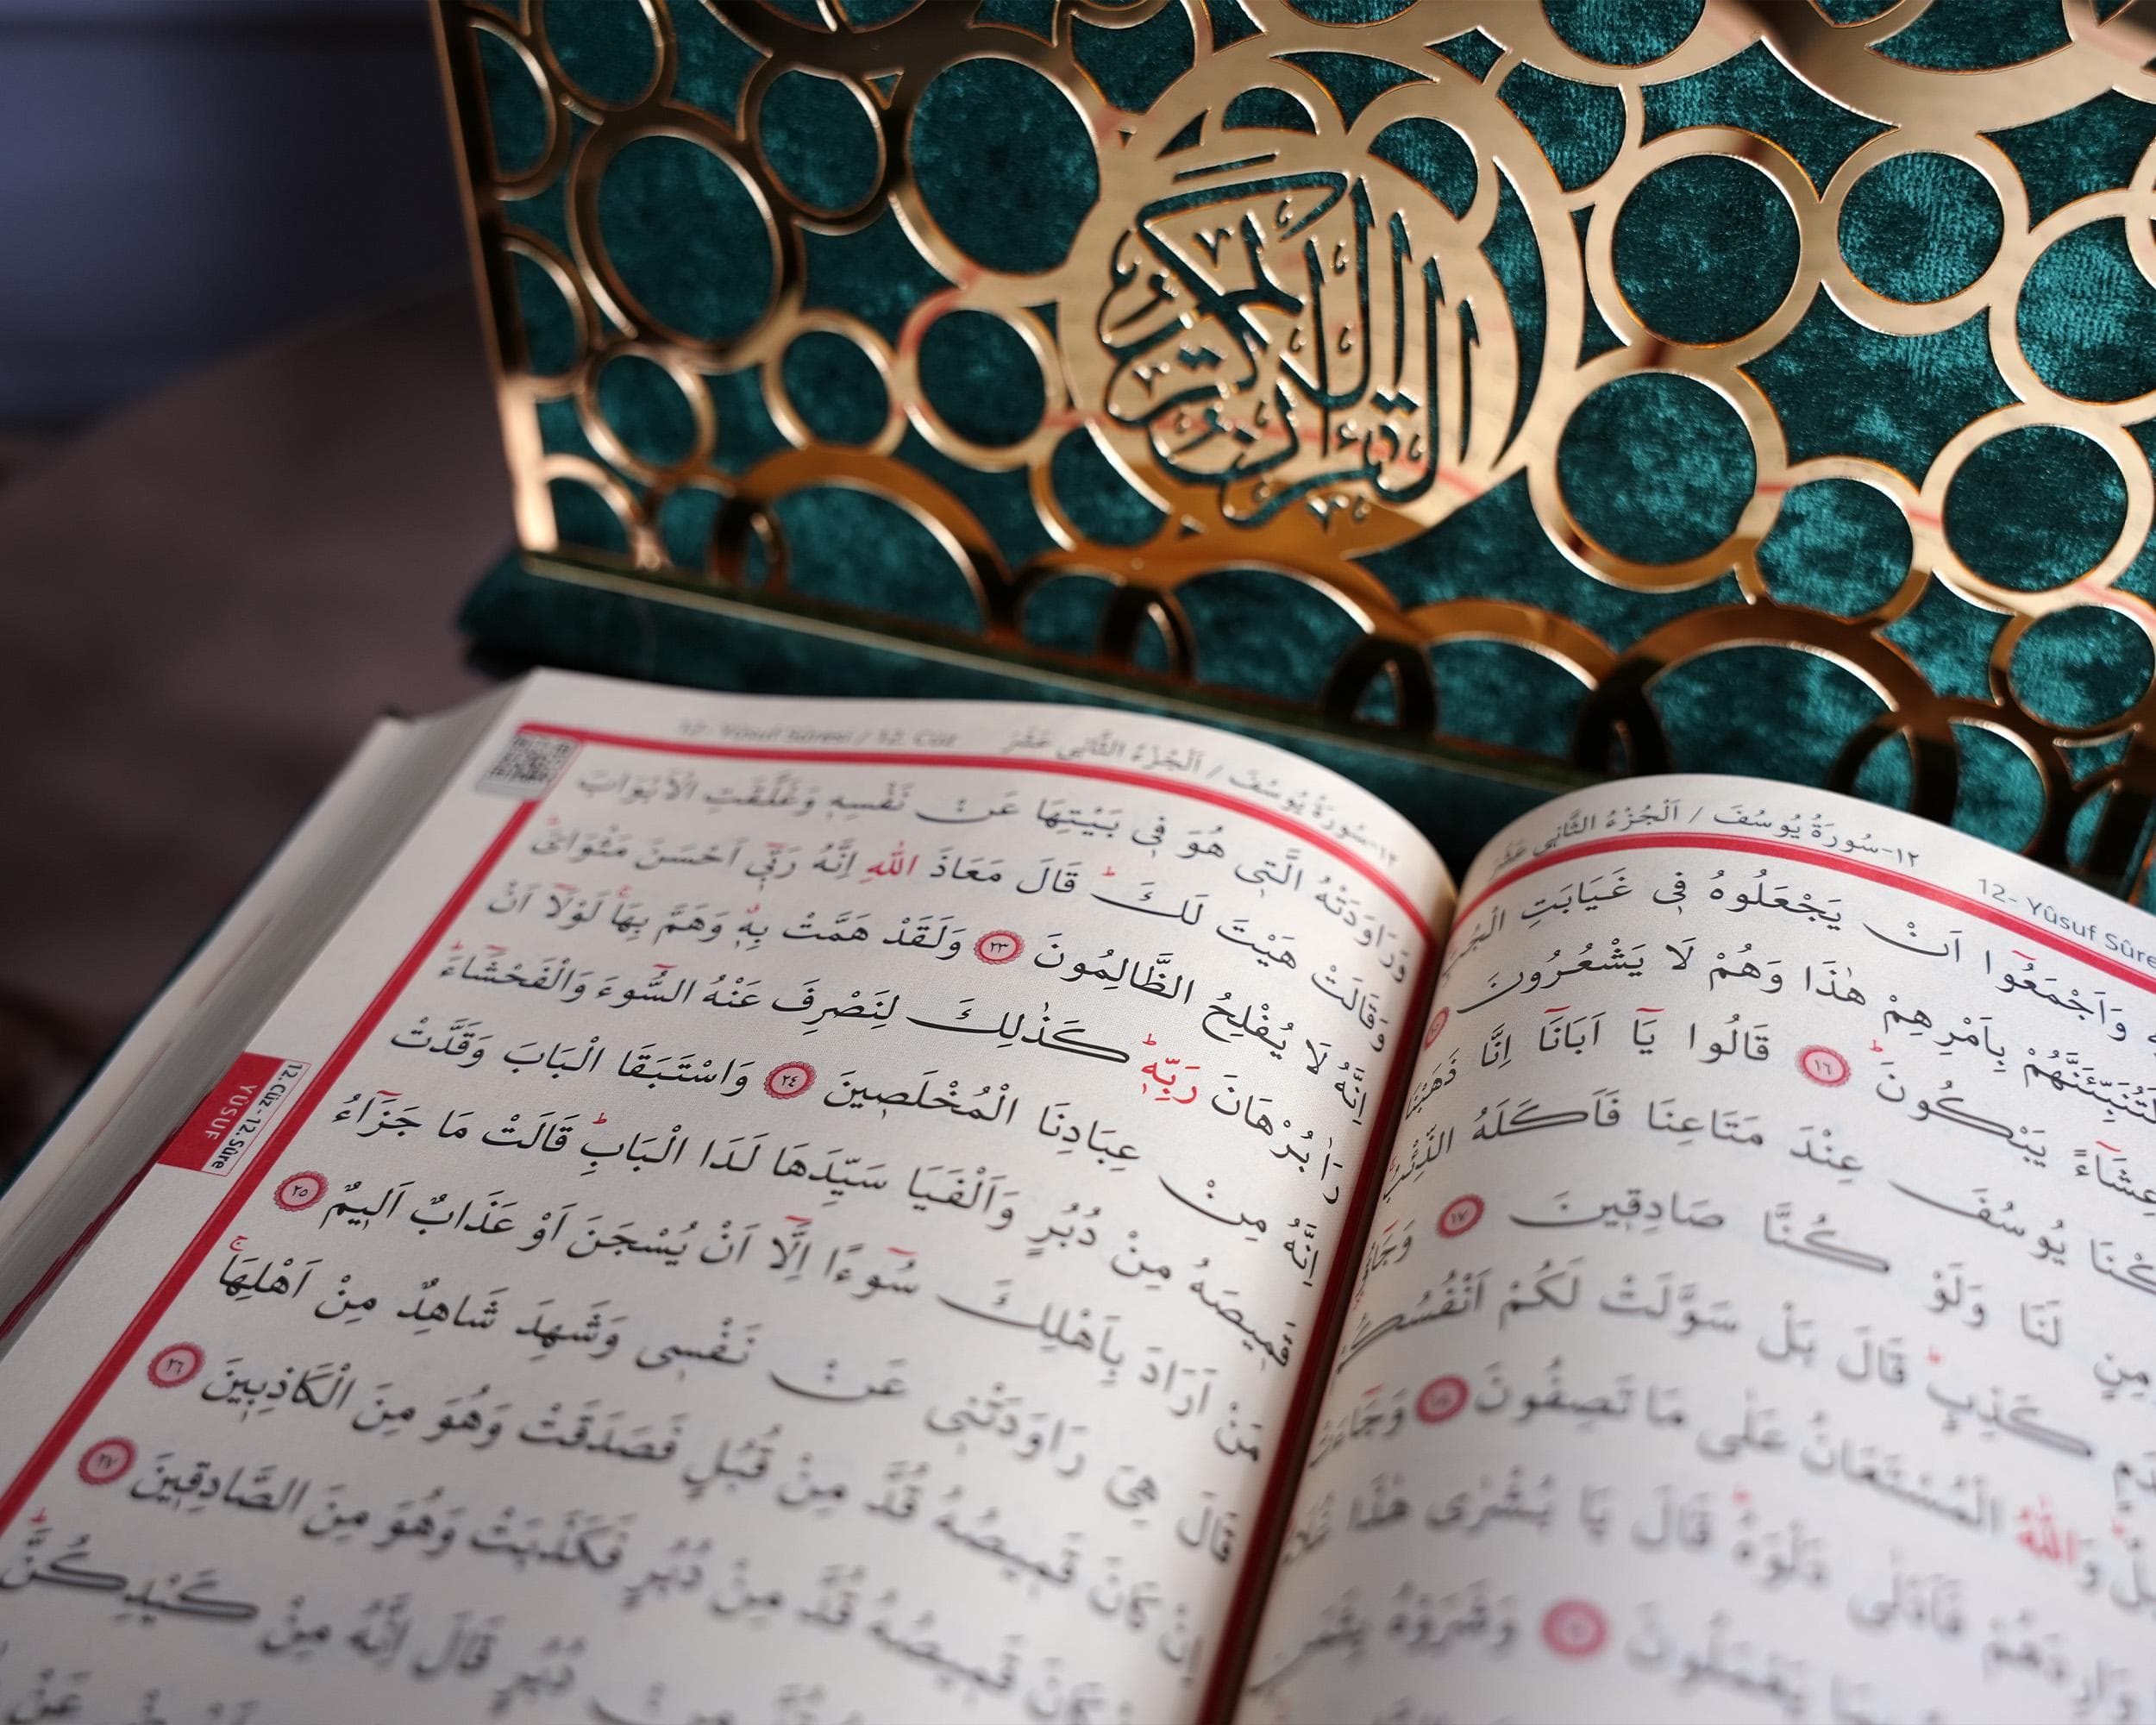 القرآن الكريم
١٢-سُورَةُ يُوسُفَ / اَلْجُزْءُ الثَّانِي عَشَرَ
12- Yûsuf Sûre
وَاَجْمَعُٓوا اَنْ يَجْعَلُوهُ فٖي غَيَابَتِ الْجُبِّ
لَتُنَبِّئَنَّهُمْ بِاَمْرِهِمْ هٰذَا وَهُمْ لَا يَشْعُرُونَ ١٥
عِشَٓاءً يَبْكُونَۜ ١٦ قَالُوا يَٓا اَبَانَٓا اِنَّا ذَهَبْنَا
يُوسُفَ عِنْدَ مَتَاعِنَا فَاَكَلَهُ الذِّئْبُۚ
لَنَا وَلَوْ كُنَّا صَادِقٖينَ ١٧ وَجَٓاؤُ۫
كَذِبٍۜ قَالَ بَلْ سَوَّلَتْ لَكُمْ اَنْفُسُكُمْ
وَاللّٰهُ الْمُسْتَعَانُ عَلٰى مَا تَصِفُونَ ١٨ وَجَٓاءَتْ
وَارِدَهُمْ فَاَدْلٰى دَلْوَهُۜ قَالَ يَا بُشْرٰى هٰذَا غُلَامٌۜ
يَعْمَلُونَ ١٩ وَشَرَوْهُ بِثَمَنٍ
12- Yûsuf Sûresi / 12. Cüz ١٢-سُورَةُ يُوسُفَ / اَلْجُزْءُ الثَّانِي عَشَرَ
وَرَاوَدَتْهُ الَّتٖي هُوَ فٖي بَيْتِهَا عَنْ نَفْسِهٖ وَغَلَّقَتِ الْاَبْوَابَ
وَقَالَتْ هَيْتَ لَكَۜ قَالَ مَعَاذَ اللّٰهِ اِنَّهُ رَبّٖٓي اَحْسَنَ مَثْوَايَۜ
اِنَّهُ لَا يُفْلِحُ الظَّالِمُونَ ٢٣ وَلَقَدْ هَمَّتْ بِهٖۚ وَهَمَّ بِهَاۚ لَوْلَٓا اَنْ
رَاٰ بُرْهَانَ رَبِّهٖۜ كَذٰلِكَ لِنَصْرِفَ عَنْهُ السُّٓوءَ وَالْفَحْشَٓاءَۜ
اِنَّهُ مِنْ عِبَادِنَا الْمُخْلَصٖينَ ٢٤ وَاسْتَبَقَا الْبَابَ وَقَدَّتْ
قَمٖيصَهُ مِنْ دُبُرٍ وَاَلْفَيَا سَيِّدَهَا لَدَا الْبَابِۜ قَالَتْ مَا جَزَٓاءُ
مَنْ اَرَادَ بِاَهْلِكَ سُٓوءًا اِلَّٓا اَنْ يُسْجَنَ اَوْ عَذَابٌ اَلٖيمٌ ٢٥
قَالَ هِيَ رَاوَدَتْنٖي عَنْ نَفْسٖي وَشَهِدَ شَاهِدٌ مِنْ اَهْلِهَاۚ
اِنْ كَانَ قَمٖيصُهُ قُدَّ مِنْ قُبُلٍ فَصَدَقَتْ وَهُوَ مِنَ الْكَاذِبٖينَ ٢٦
كَانَ قَمٖيصُهُ قُدَّ مِنْ دُبُرٍ فَكَذَبَتْ وَهُوَ مِنَ الصَّادِقٖينَ ٢٧
دُبُرٍ قَالَ اِنَّهُ مِنْ كَيْدِكُنَّۜ
عَنْ
12. Cüz - 12. Sûre
YÛSUF